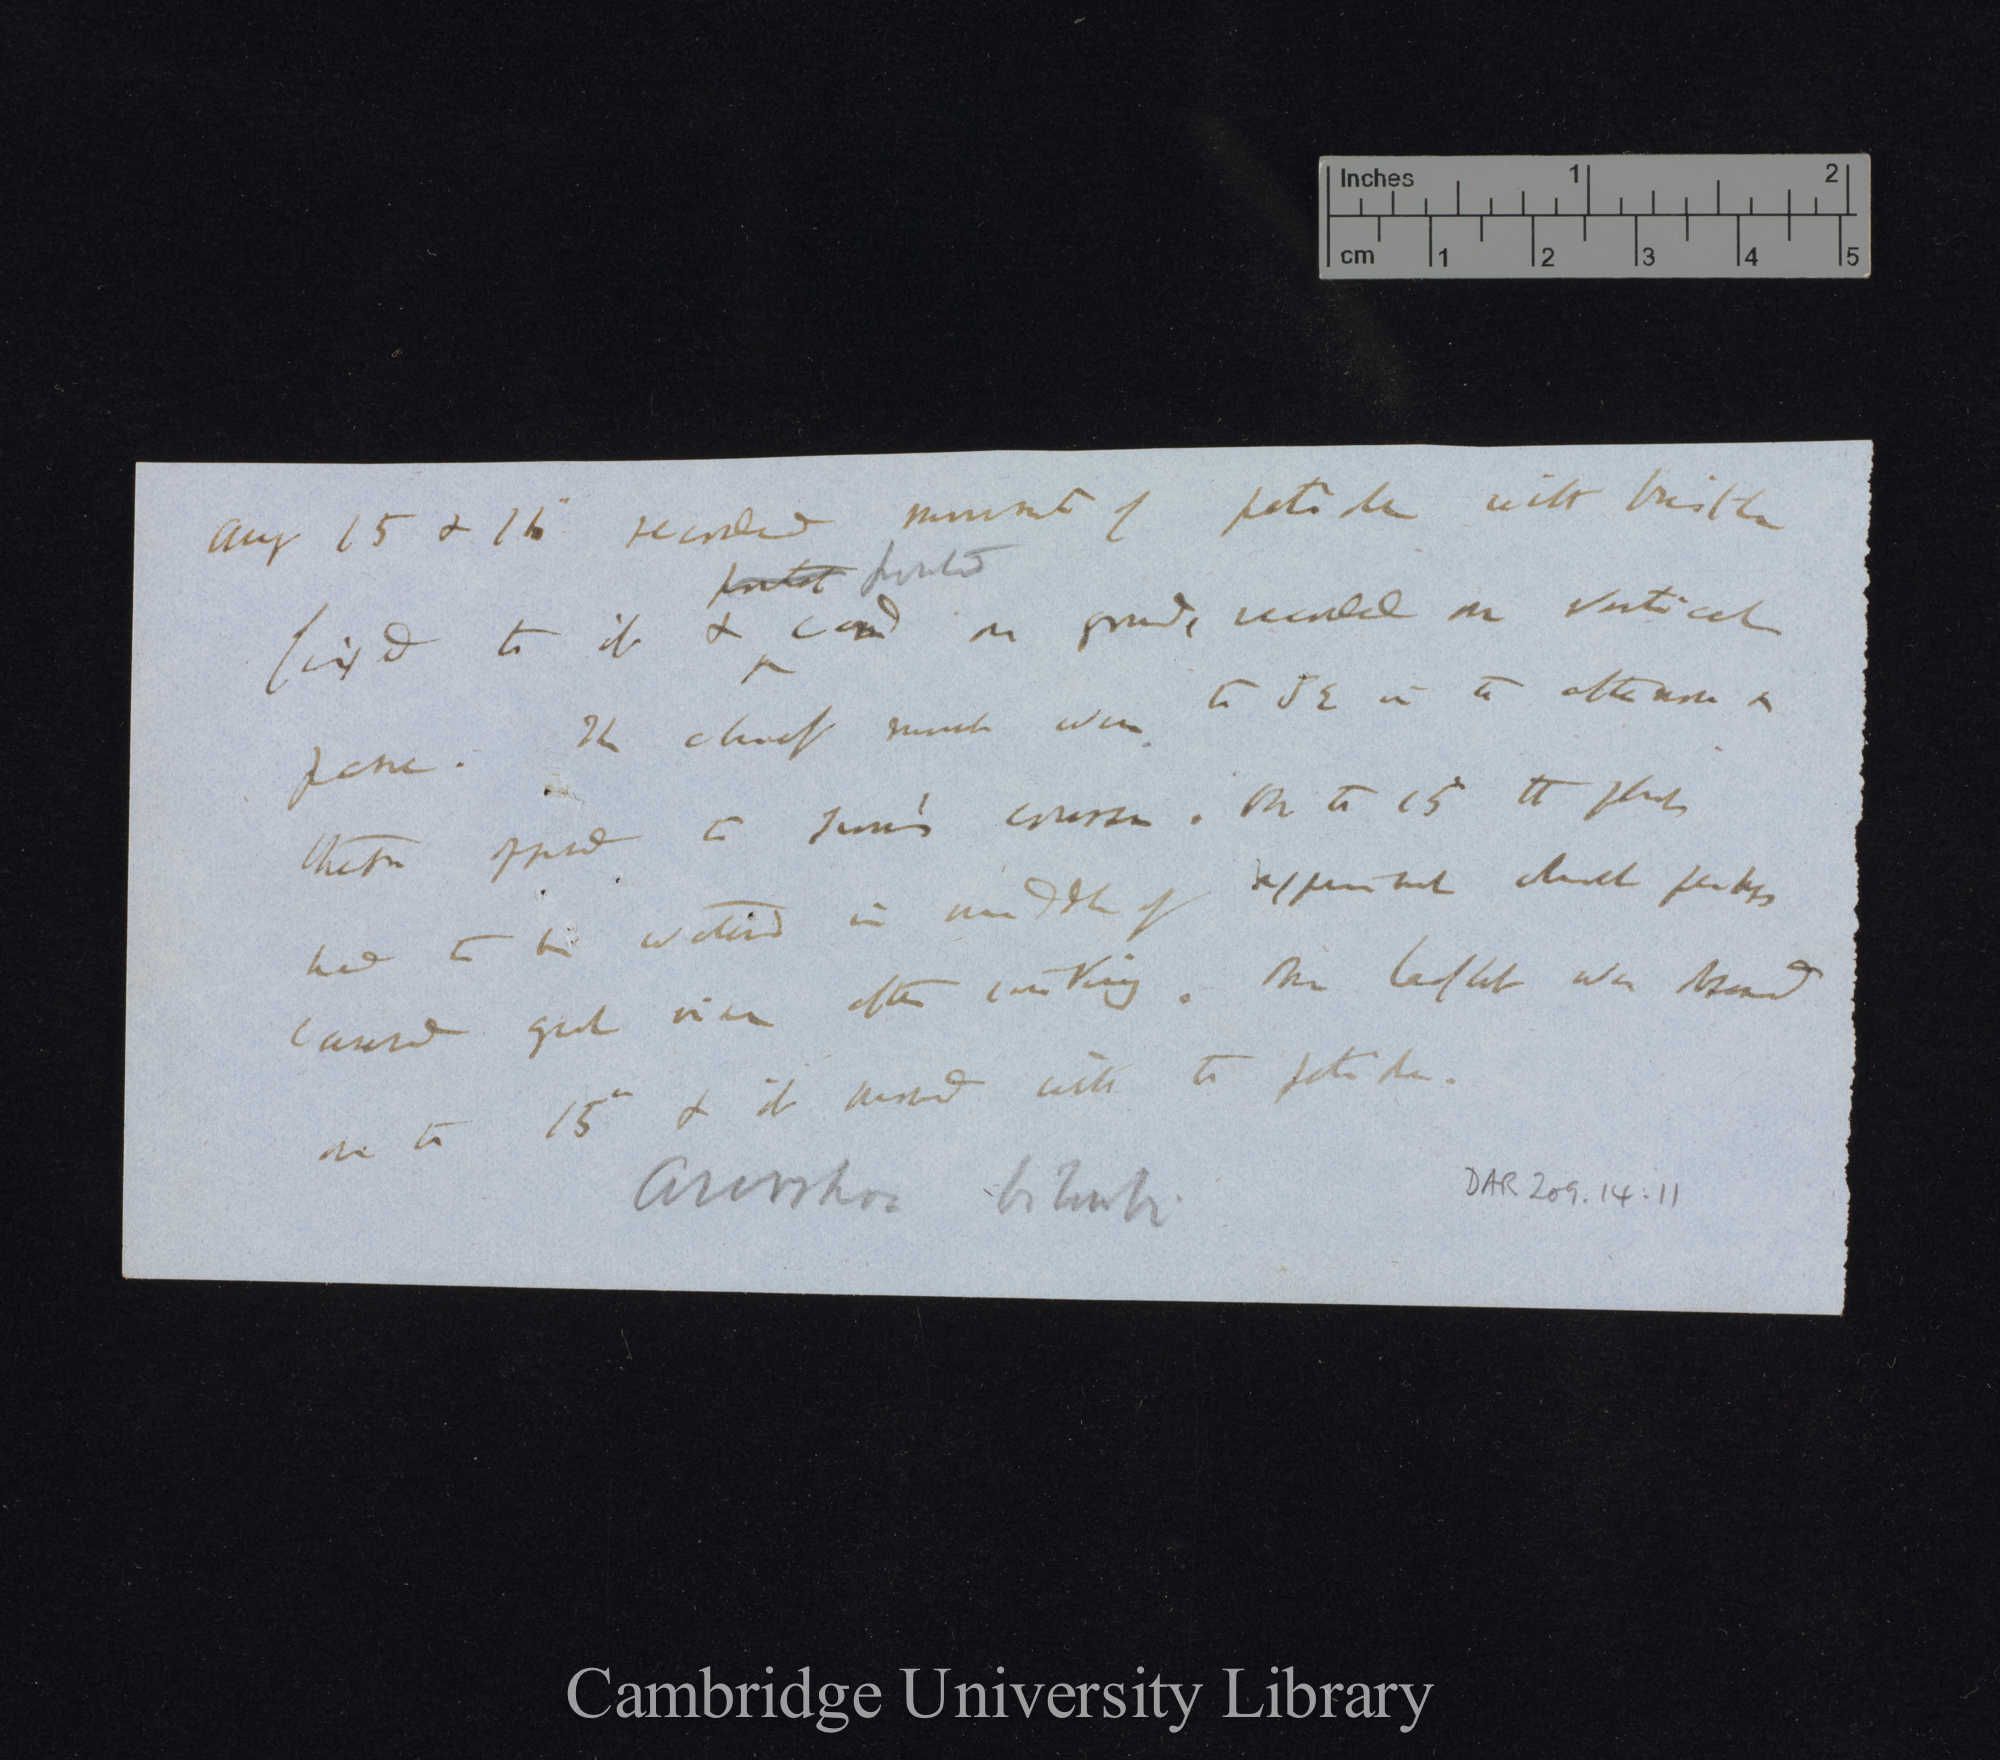 Inches 1 2
cm 1 2 3 4 5
Aug 15 & 16 recorded movement of petiole with bristle
pointed pointed
fixed to it & card on ground, recorded on vertical
pane. The chief movement was to SE in the afternoon &
therefore opposed to sun's course. On the 15 the plant
had to be watered in middle of experiment which perhaps
caused great rise after watering. One leaflet was
on the 15th & it moved with the petiole.
DAR 209.14:11
Cambridge University Library